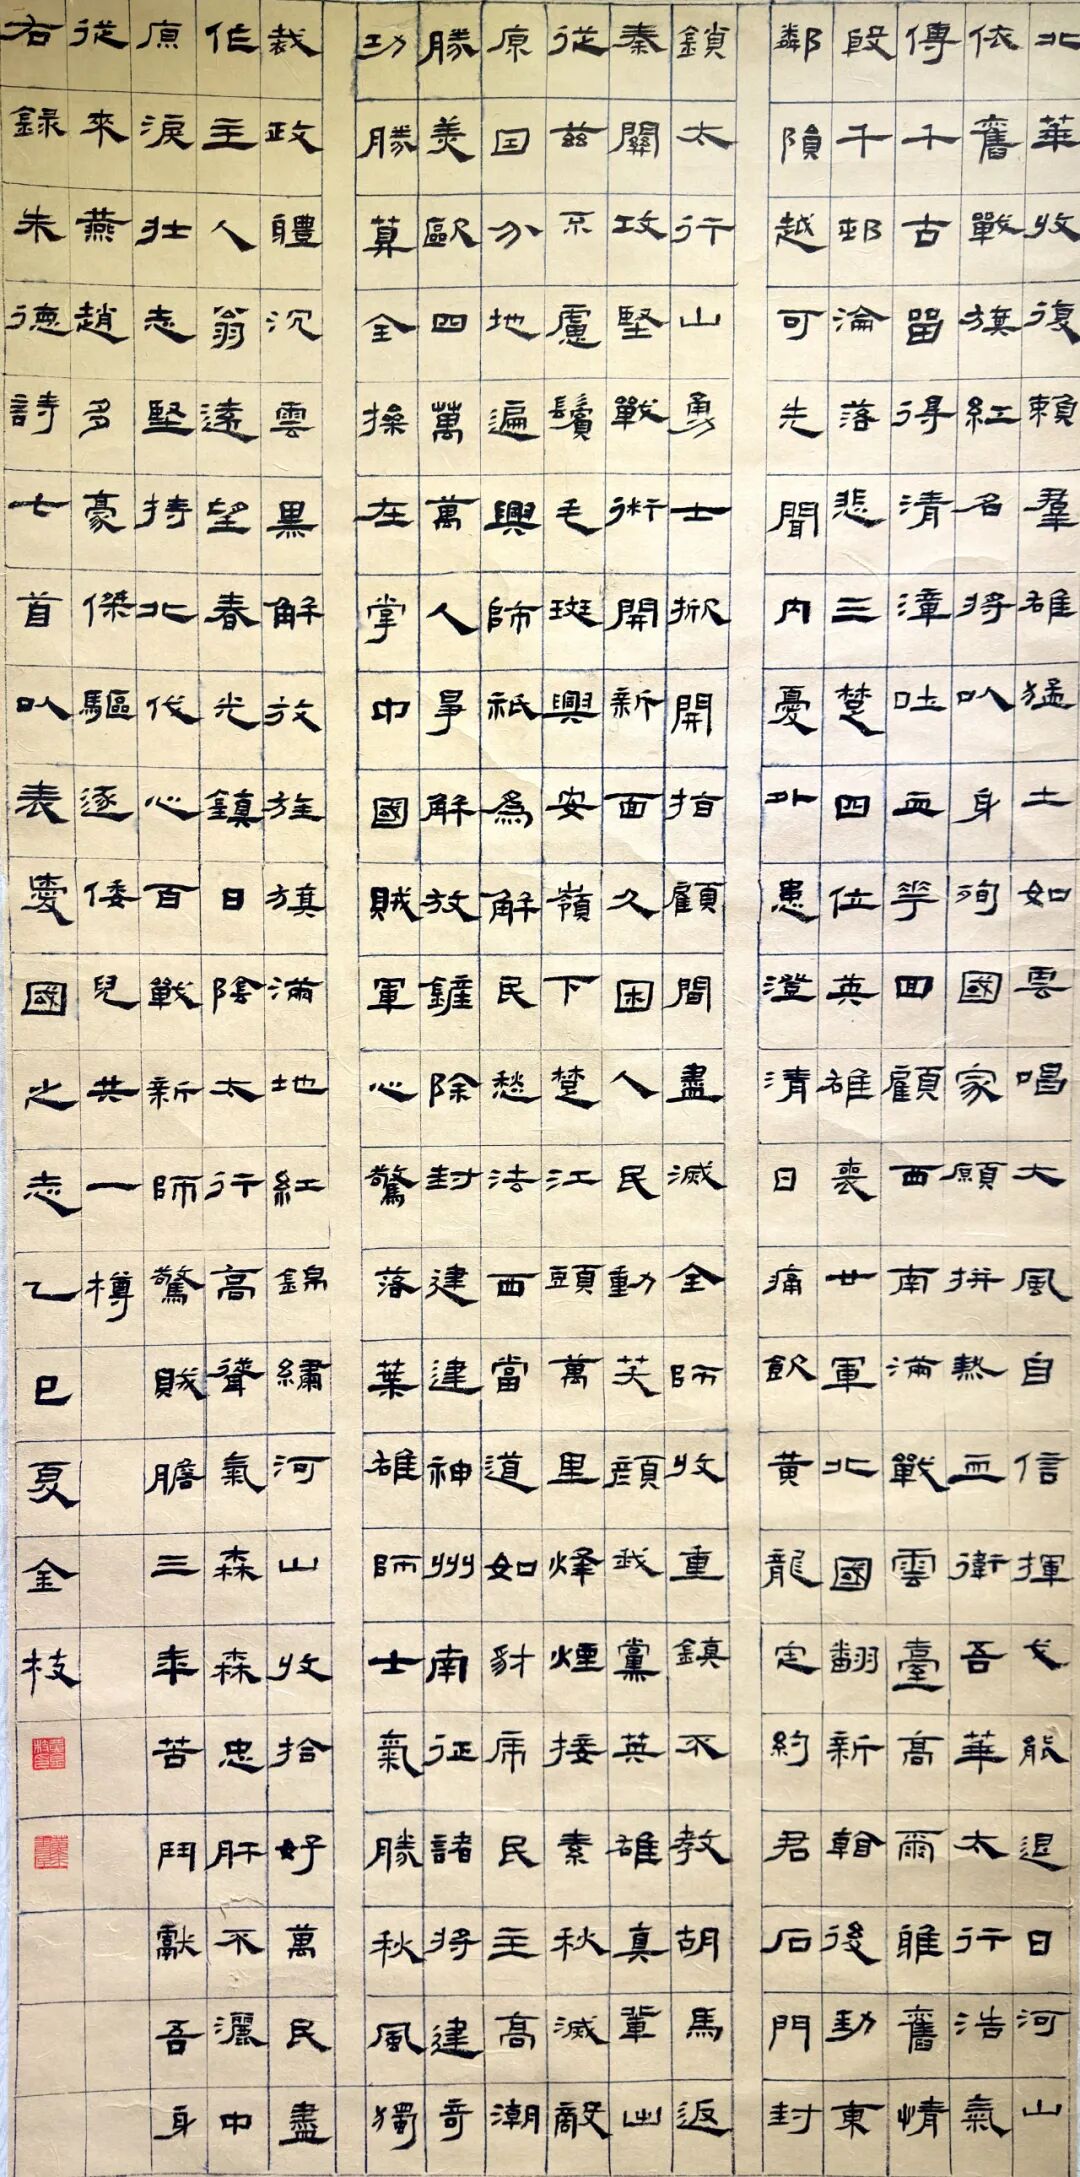 北華收復賴羣雄猛士如雲唱大風自信揮戈能退日河山
依舊戰旗紅名將以身殉國家願拼熱血衛吾華太行浩氣
傳千古畱得清漳吐血花四顧西南滿戰雲臺高爾雅舊情
段千邨淪落悲三楚四位英雄喪廿軍北國翻新後勁東
鄰隕越可先聞內憂外患澄清日痛飲黃龍定約君石門封
鎖太行山勇士掀開指顧間盡滅全師收重鎮不教胡馬返
秦關攻堅戰術開新面久困人民動笑顏我黨英雄真輩出
從茲不慮鬢毛斑興安嶺下楚江頭萬里烽煙接素秋滅敵
原囯分地遍興師祇為解民愁法西當道如豺虎民主高潮
勝美歐四萬萬人爭解放鏟除封建建神州南征諸將建奇
功勝算全操在掌中國賊軍心驚落葉雄師士氣勝秋風獨
裁政體沉雲黑解放旌旗滿地紅錦繡河山收拾好萬民盡
作主人翁遠望春光鎮日陰太行高聳氣森森忠肝不灑中
原淚壯志堅持北伐心百戰新師驚賊膽三年苦鬥獻吾身
從來燕趙多豪傑驅逐倭兒共一樽
右錄朱德詩七首以表愛國之志乙巳夏金枝